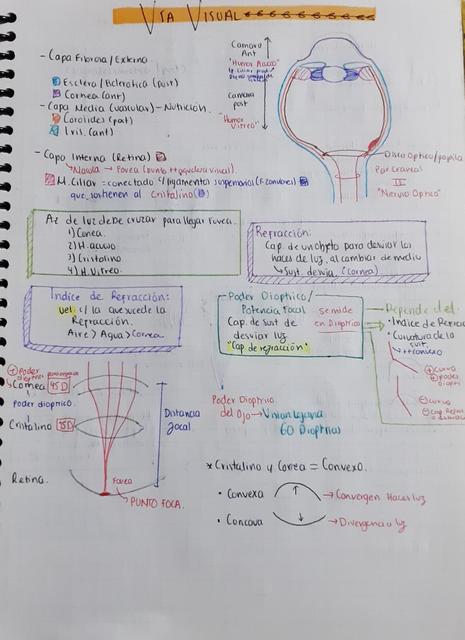 VIA VISUAL
- Capa Fibrosa/Externa
Esclera/Esclerotica (post)
Cornea (ant)
- Capa Media (vascular) - Nutrición.
Coroides (post)
Iris. (ant)
- Capa Interna (Retina)
Macula → Fovea (punto ++ agudeza visual)
M. Ciliar = conectado c/ligamentos suspensorio
que sostienen al Cristalino
Camara
Ant
"Humor Acuoso"
camara
post
"Humor
Vitreo"
Disco Optico/papila
Par Craneal
II
"Nervio Optico"
Az de luz debe cruzar para llegar Fovea.
1) Cornea.
2) H. acuoso
3) Cristalino
4) H. Vitreo.
Refracción:
Cap. de un objeto para desviar los
haces de luz, al cambiar de medio
↳ Sust. desvia. (Cornea)
Indice de Refracción:
vel c/ la que sucede la
Refracción.
Aire > Agua > Cornea
Poder Dioptrico/
Potencia focal
Cap. de sust de
desviar luz
"Cap de refracción"
se mide
en Dioptrias
Depende del:
• Indice de Refracc
• Curvatura de la
sust.
⊕ curva
⊕ poder
dioptri
⊖ curva
⊕ Poder
dioptri
Cornea 45D
Poder dioptrico
Cristalino 15D
Retina.
Fovea
PUNTO FOCAL
Distancia
focal
Poder Dioptrico
del Ojo → Vision lejana
60 Dioptrias
* Cristalino y Cornea = Convexo.
• Convexa → Convergen Haces luz
• Concava → Divergencia luz